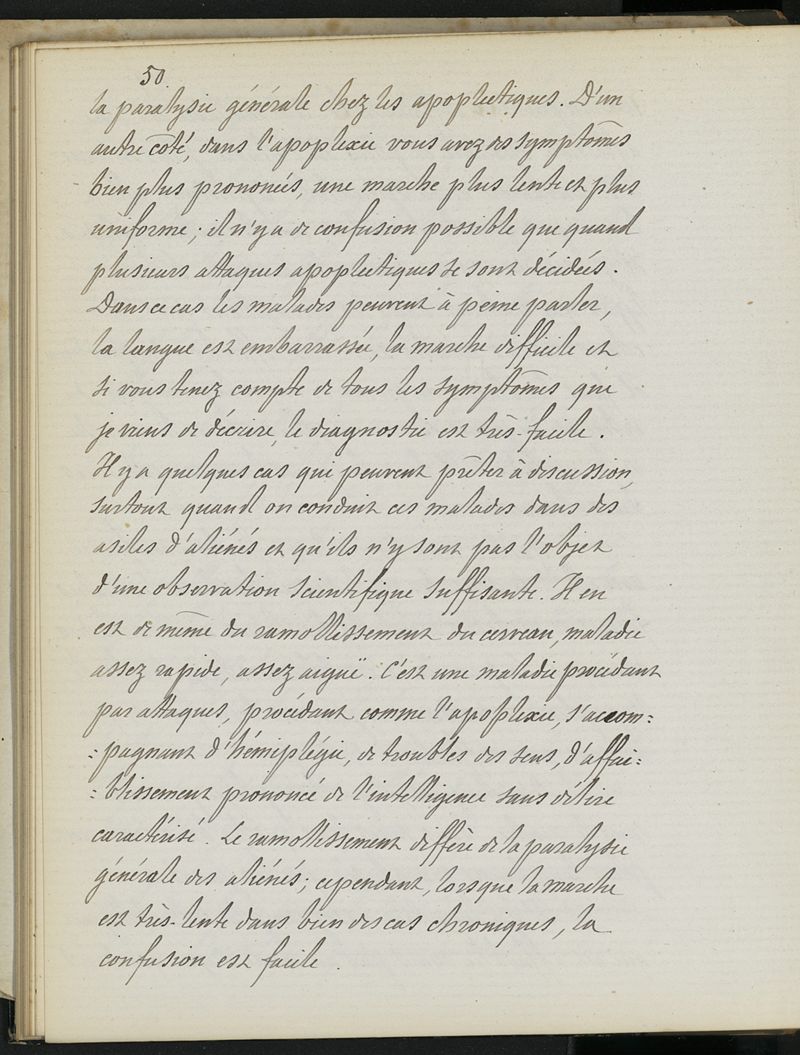 50
la paralysie générale chez les apoplectiques. D'un
autre côté, dans l'apoplexie vous avez des symptômes
bien plus prononcés, une marche plus lente et plus
uniforme ; il n'y a de confusion possible que quand
plusieurs attaques apoplectiques se sont décidées.
Dans ce cas les malades peuvent à peine parler,
la langue est embarrassée, la marche difficile et
si vous tenez compte de tous les symptômes que
je viens de décrire, le diagnostic est très-facile.
Il y a quelques cas qui peuvent prêter à discussion,
surtout quand on conduit ces malades dans des
asiles d'aliénés et qu'ils n'y sont pas l'objet
d'une observation scientifique suffisante. Il en
est de même du ramollissement du cerveau, maladie
assez rapide, assez aiguë. C'est une maladie procédant
par attaques, procédant comme l'apoplexie, s'accom=
=pagnant d'hémiplégie, de troubles des sens, d'affai=
=blissement prononcé de l'intelligence sans délire
caractérisé. Le ramollissement diffère de la paralysie
générale des aliénés ; cependant, lorsque la marche
est très-lente dans bien des cas chroniques, la
confusion est facile.